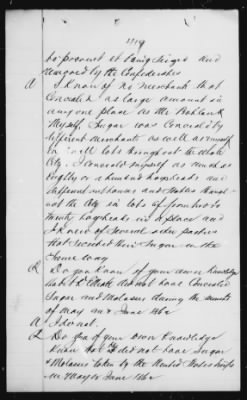 to prevent it being seized and
by the Confederates
A I know of no merchant that
Concealed as large amount in
any one place as the
Myself, Sugar was Concealed by
different merchants as well as myself
in small lots throughout the whole
City. I Concealed myself as much as
Eighty or a hundred hogsheads and
different out houses and Stables through-
out the City in lots of from two to
Twenty hogsheads in a place and
I know of several other parties
that Secreted their Sugar in the
Same way
Q Do you know of your own Knowledge
that did not have Concealed
Sugar and Molasses during the months
of May and June 1862
A I do not.
Q Do you of your own Knowledge
Know that did not have Sugar
& Molasses taken by the United States troops
in May or June 1862